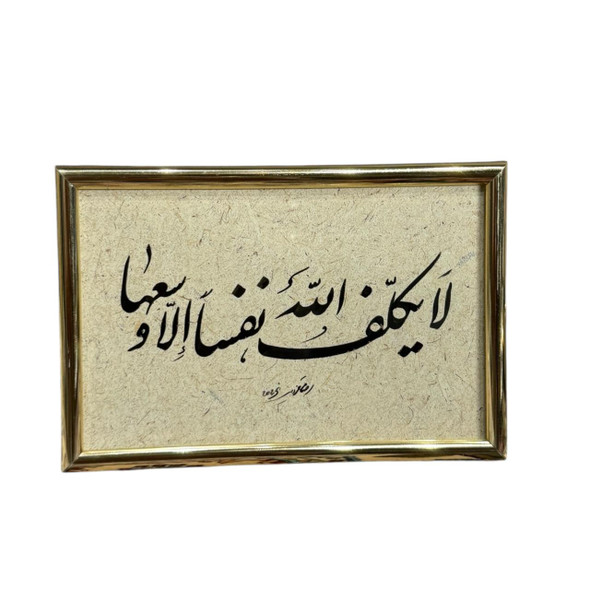 لَا يكلّف اللّهُ نفساً إلّا وسعها